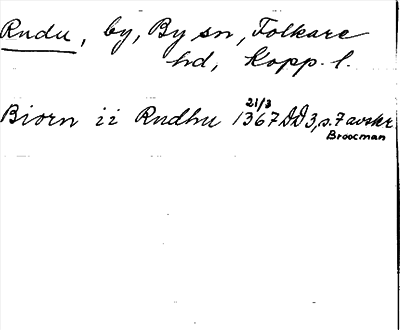 Rudu, by, By sn, Folkare
hd, Kopp. l.
Biorn ii Rudhu 21/3 1367 DD 3, s. 7 avskr.
Broocman